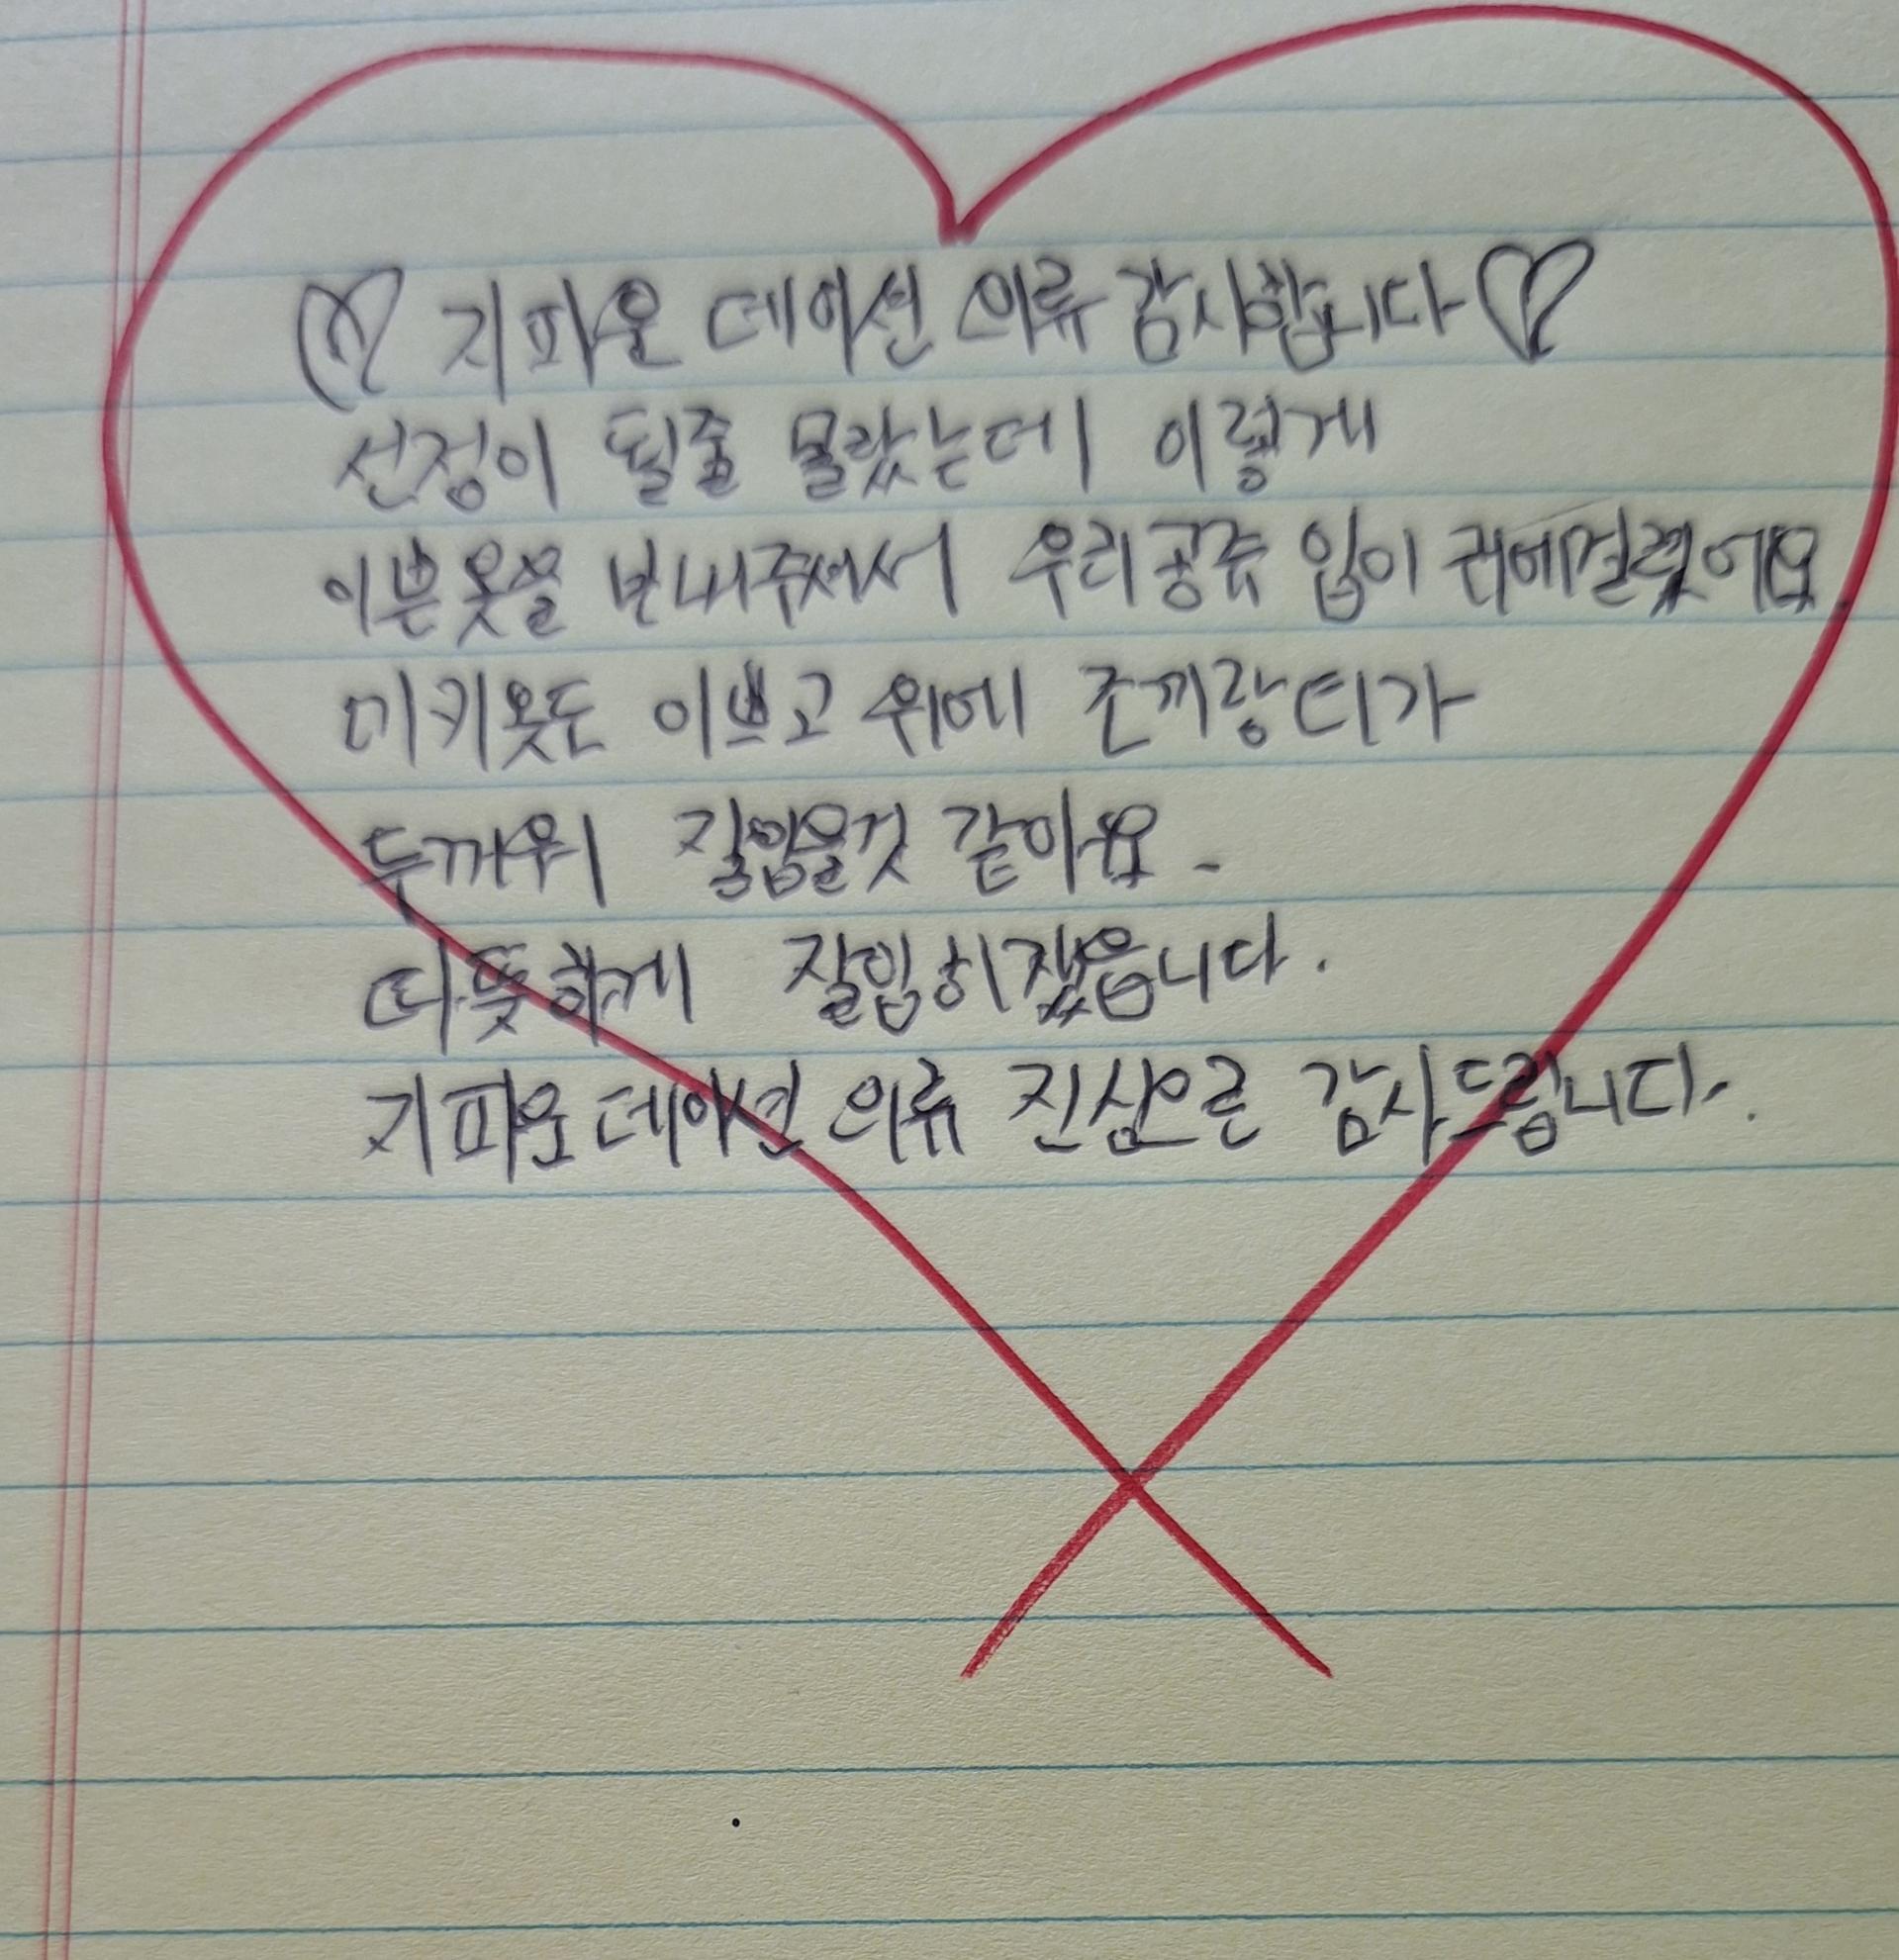 ♡ 지파운데이션 의류 감사합니다 ♡
선정이 될줄 몰랐는데 이렇게
이쁜옷을 보내주셔서 우리공쥬 입이 귀에걸렸어요
미키옷도 이쁘고 위에 조끼랑 티가
두꺼워 잘입을것 같아요.
따뜻하게 잘입히겠읍니다.
지파운데이션 의류 진심으로 감사드립니다.